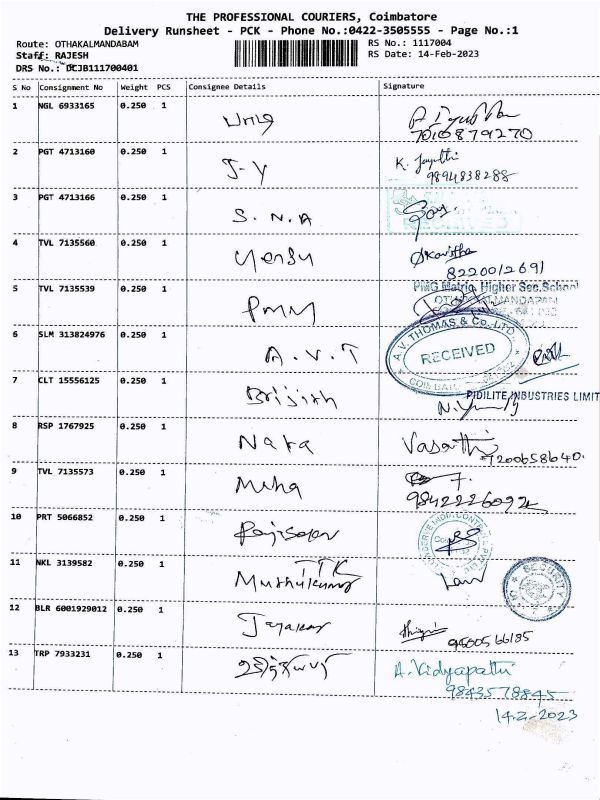 THE PROFESSIONAL COURIERS, Coimbatore
Delivery Runsheet - PCK - Phone No.:0422-3505555 - Page No.:1
Route: OTHAKALMANDABAM
RS No.: 1117004
Staff: RAJESH
RS Date: 14-Feb-2023
DRS No.: DCJB111700401
S No Consignment No Weight PCS Consignee Details Signature
1 NGL 6933165 0.250 1
7010879270
2 PGT 4713160 0.250 1 J-Y K. Jayathi
9894838288
3 PGT 4713166 0.250 1 S.N.A
4 TVL 7135560 0.250 1
8220012691
5 TVL 7135539 0.250 1 PMM PMG Matric. Higher Sec.School
OTHAKALMANDAPAM
6 SLM 313824976 0.250 1 A.V.T A.V. THOMAS & Co. LTD.
RECEIVED
7 CLT 15556125 0.250 1 Brijish PIDILITE INDUSTRIES LIMIT
8 RSP 1767925 0.250 1 Nata Vasathi
7200658640.
9 TVL 7135573 0.250 1 Meha
10 PRT 5066852 0.250 1
11 NKL 3139582 0.250 1 TTK
Muthukumar
SECURITY
12 BLR 6001929012 0.250 1 Jayakar
13 TRP 7933231 0.250 1 A. Vidyapathi
9843578845
14.2-2023